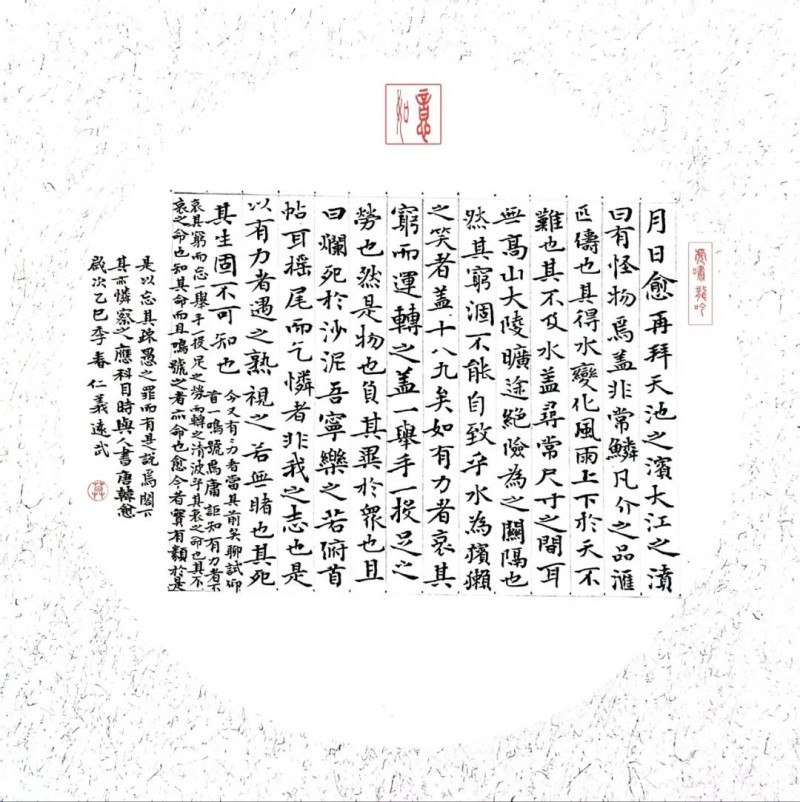 如意
虎嘯龍吟
月日愈再拜天池之濱大江之濆
曰有怪物焉蓋非常鱗凡介之品滙
匹儔也其得水變化風雨上下於天不
難也其不及水蓋尋常尺寸之間耳
無髙山大陵曠途絕險為之關隔也
然其窮涸不能自致乎水為獱獺
之笑者蓋十八九矣如有力者哀其
窮而運轉之蓋一舉手一投足之
勞也然是物也負其異於眾也且
曰爛死於沙泥吾寧樂之若俯首
帖耳摇尾而乞憐者非我之志也是
以有力者遇之熟視之若無睹也其死
其生固不可知也
今又有〻力者當其前矣聊試仰
首一鳴號焉庸詎知有力者不
哀其窮而忘一舉手投足之勞而轉之清波乎其哀之命也其不
哀之命也知其命而且鳴號之者亦命也愈今者實有類於是
是以忘其疎愚之罪而有是說焉閣下
其亦憐察之應科目時與人書唐韓愈
歲次乙巳季春仁義遠武